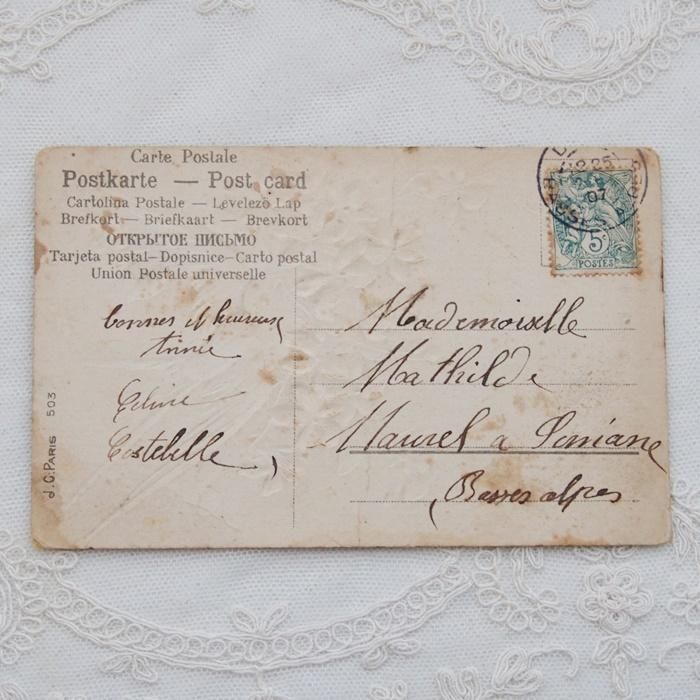 Carte Postale
Postkarte — Post card
Cartolina Postale — Levelezö Lap
Brefkort — Briefkaart — Brevkort
ОТКРЫТОЕ ПИСЬМО
Tarjeta postal—Dopisnice—Carto postal
Union Postale universelle
bonnes et heureuse
Année
Céline
Costebelle
Mademoiselle
Mathilde
Maurel a
Basses alpes
J.C. PARIS 503
07
5c
POSTES